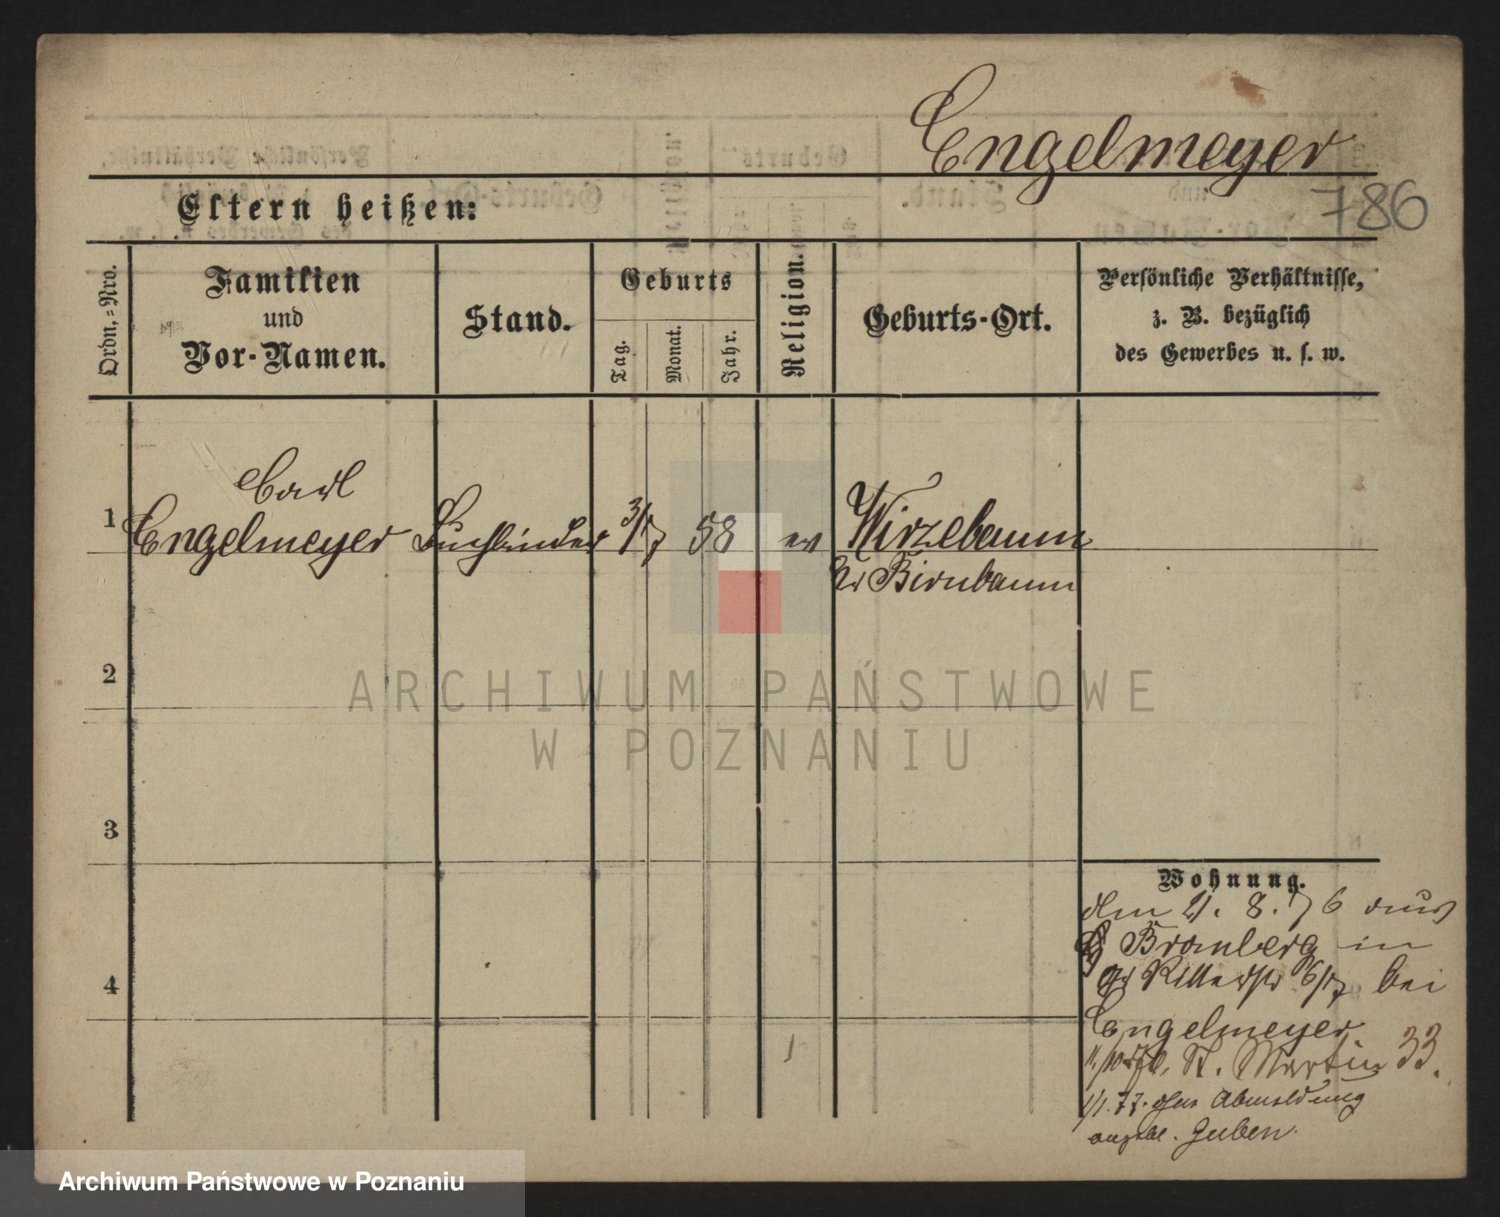 Engelmeyer
786
Eltern heißen:
Ordn.-Nro.
Familien
und
Vor-Namen.
Stand.
Geburts
Tag.
Monat.
Jahr.
Religion.
Geburts-Ort.
Persönliche Verhältnisse,
z. B. bezüglich
des Gewerbes u. s. w.
1
Carl
Engelmeyer
Buchbinder
3/7
58
ev
Wirzebaum
Kr Birnbaum
2
3
4
Wohnung.
den 21. 8. 76 aus
Bromberg in
gr Ritterstr 16/17 bei
Engelmeyer
11/10 76. St. Martin 33.
1/1. 77. ohne Abmeldung
angebl. Guben.
ARCHIWUM PAŃSTWOWE
W POZNANIU
Archiwum Państwowe w Poznaniu